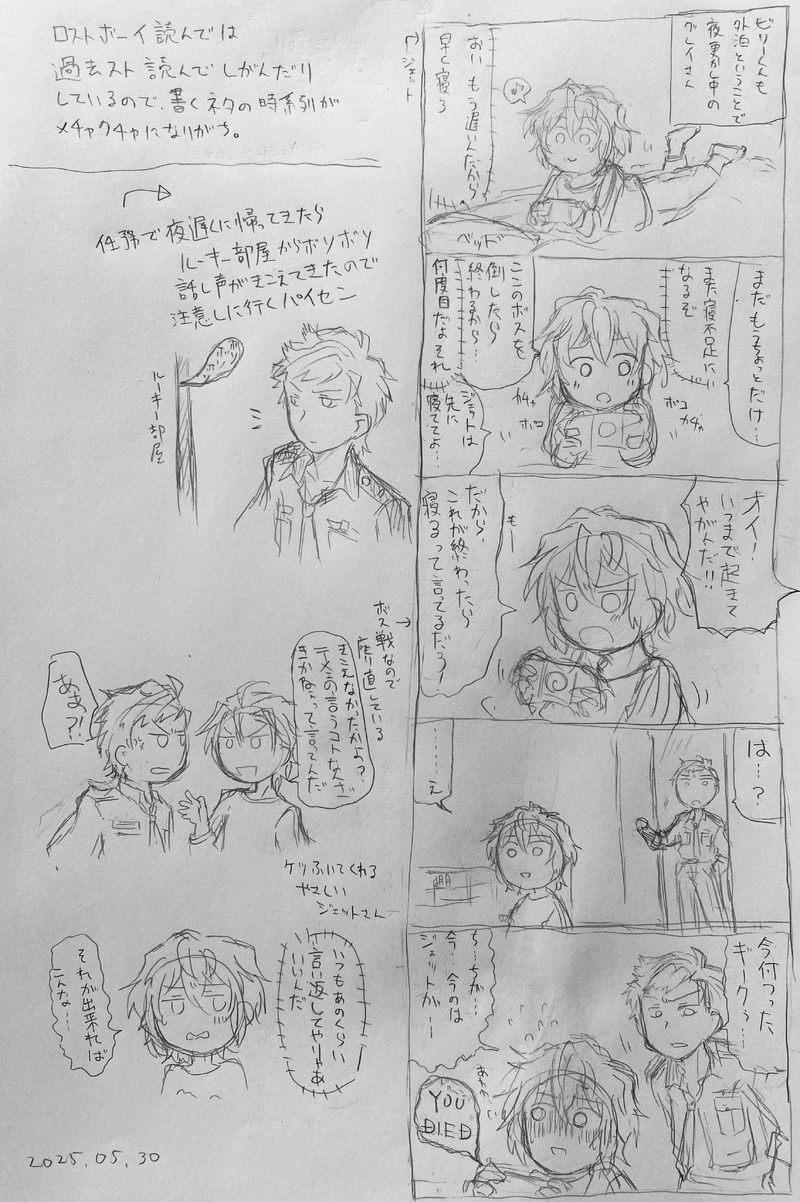 ロストボーイ読んでは
過去スト読んでしがんだり
しているので、書くネタの時系列が
メチャクチャになりがち。
ビリーくんも
外泊ということで
夜更かし中の
グレイさん
おい もう遅いんだから
早く寝ろ
ジェット
♪
ベッド
まだもうちょっとだけ…
また寝不足に
なるぞ
ここのボスを
倒したら
終わるから…
何度目だよそれ
ジェットは
先に
寝ててよ…
ガチャ
ボコ
ボコ
ガチャ
オイ!
いつまで起きて
やがんだ!!
もー
だから、
これが終わったら
寝るって言ってるだろ!
は…?
………え
今何つった、
ギークぅ…
ち…ちが…
今…今のは
ジェットが…
あわわ
YOU
DIED
任務で夜遅くに帰ってきたら
ルーキー部屋からボソボソ
話し声がきこえてきたので
注意しに行くパイセン
ボソボソ
ルーキー部屋
ボス戦なので
座り直している
きこえなかったかよ?
テメェの言うコトなんざ
きかねぇって言ってんだ
あぁ?!
ケツふいてくれる
やさしい
ジェットさん
いつもあのくらい
言い返してやりゃあ
いいんだ
それが出来れば
こんな…
2025.05.30